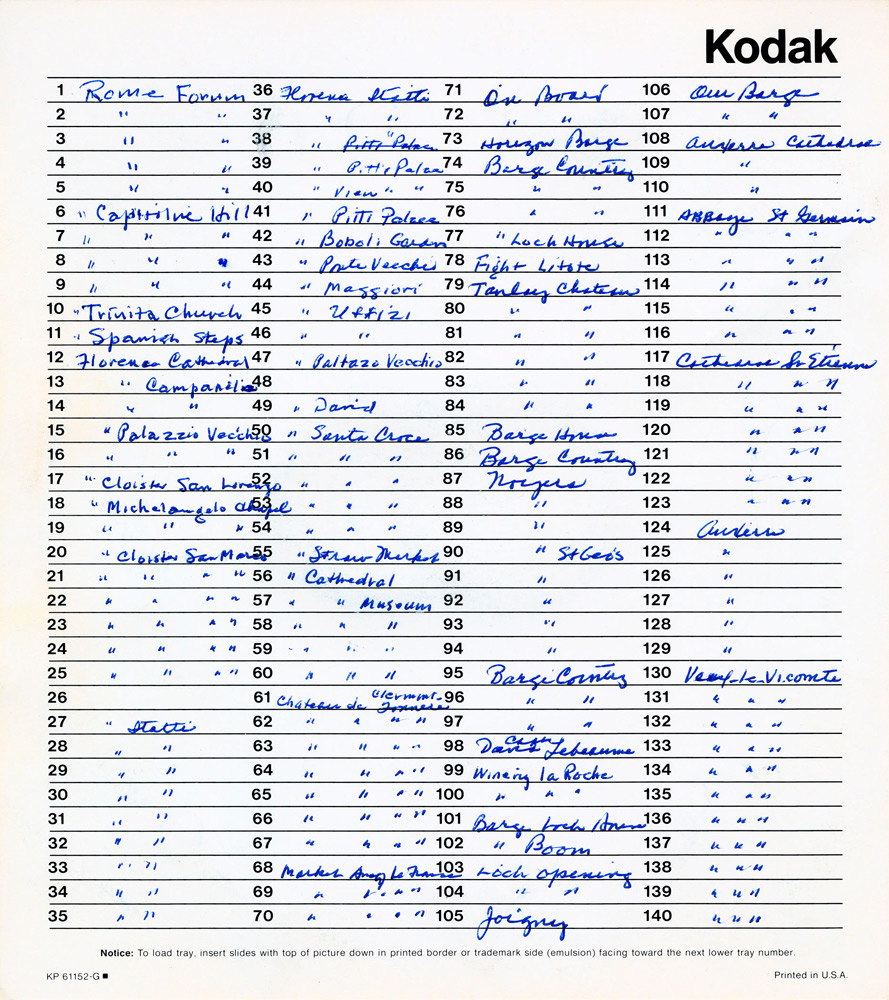 Kodak
1 Rome Forum
2 " "
3 " "
4 " "
5 " "
6 " Capitoline Hill
7 " " "
8 " " "
9 " " "
10 " Trinita Church
11 " Spanish Steps
12 Florence Cathedral
13 " Campanile
14 " "
15 " Palazzio Vecchio
16 " " "
17 " Cloister San Lorenzo
18 " Michelangelo Chapel
19 " " "
20 " Cloister San Marco
21 " " " "
22 " " " "
23 " " " "
24 " " " "
25 " " " "
26
27 " Itatti
28 " "
29 " "
30 " "
31 " "
32 " "
33 " "
34 " "
35 " "
36 Florence Itatti
37 " "
38 " Pitti Palace
39 " Pitti Palace
40 " View " "
41 " Pitti Palace
42 " Boboli Garden
43 " Ponte Vecchio
44 " Maggiori
45 " Uffizi
46 " "
47 " Paltazo Vecchio
48
49 " David
50 " Santa Croce
51 " " "
52 " " "
53 " " "
54 " " "
55 " Straw Market
56 " Cathedral
57 " " Museum
58 " " "
59 " " "
60 " " "
61 Chateau de Clermont-Tonnere
62 " " " "
63 " " " "
64 " " " "
65 " " " "
66 " " " "
67 " " " "
68 Market Ancy Le Franc
69 " " " "
70 " " " "
71 On Board
72 " "
73 Horizon Barge
74 Barge Country
75 " "
76 " "
77 " Loch House
78 Fight Litote
79 Tanlay Chateau
80 " "
81 " "
82 " "
83 " "
84 " "
85 Barge House
86 Barge Country
87 Noyers
88 "
89 "
90 " St Geo's
91 "
92 "
93 "
94 "
95 Barge Country
96 " "
97 " "
98 David Lebeaume
99 Winery la Roche
100 " " "
101 Barge Loch House
102 " Boom
103 Loch opening
104 " "
105 Joigny
106 Our Barge
107 " "
108 Auxerre Cathedral
109 "
110 "
111 Abbaye St Germain
112 " " "
113 " " "
114 " " "
115 " " "
116 " " "
117 Cathedral St Etienne
118 " " "
119 " " "
120 " " "
121 " " "
122 " " "
123 " " "
124 Auxerre
125 "
126 "
127 "
128 "
129 "
130 Vaux-le-Vicomte
131 " " "
132 " " "
133 " " "
134 " " "
135 " " "
136 " " "
137 " " "
138 " " "
139 " " "
140 " " "
Notice: To load tray, insert slides with top of picture down in printed border or trademark side (emulsion) facing toward the next lower tray number.
KP 61152-G ■
Printed in U.S.A.